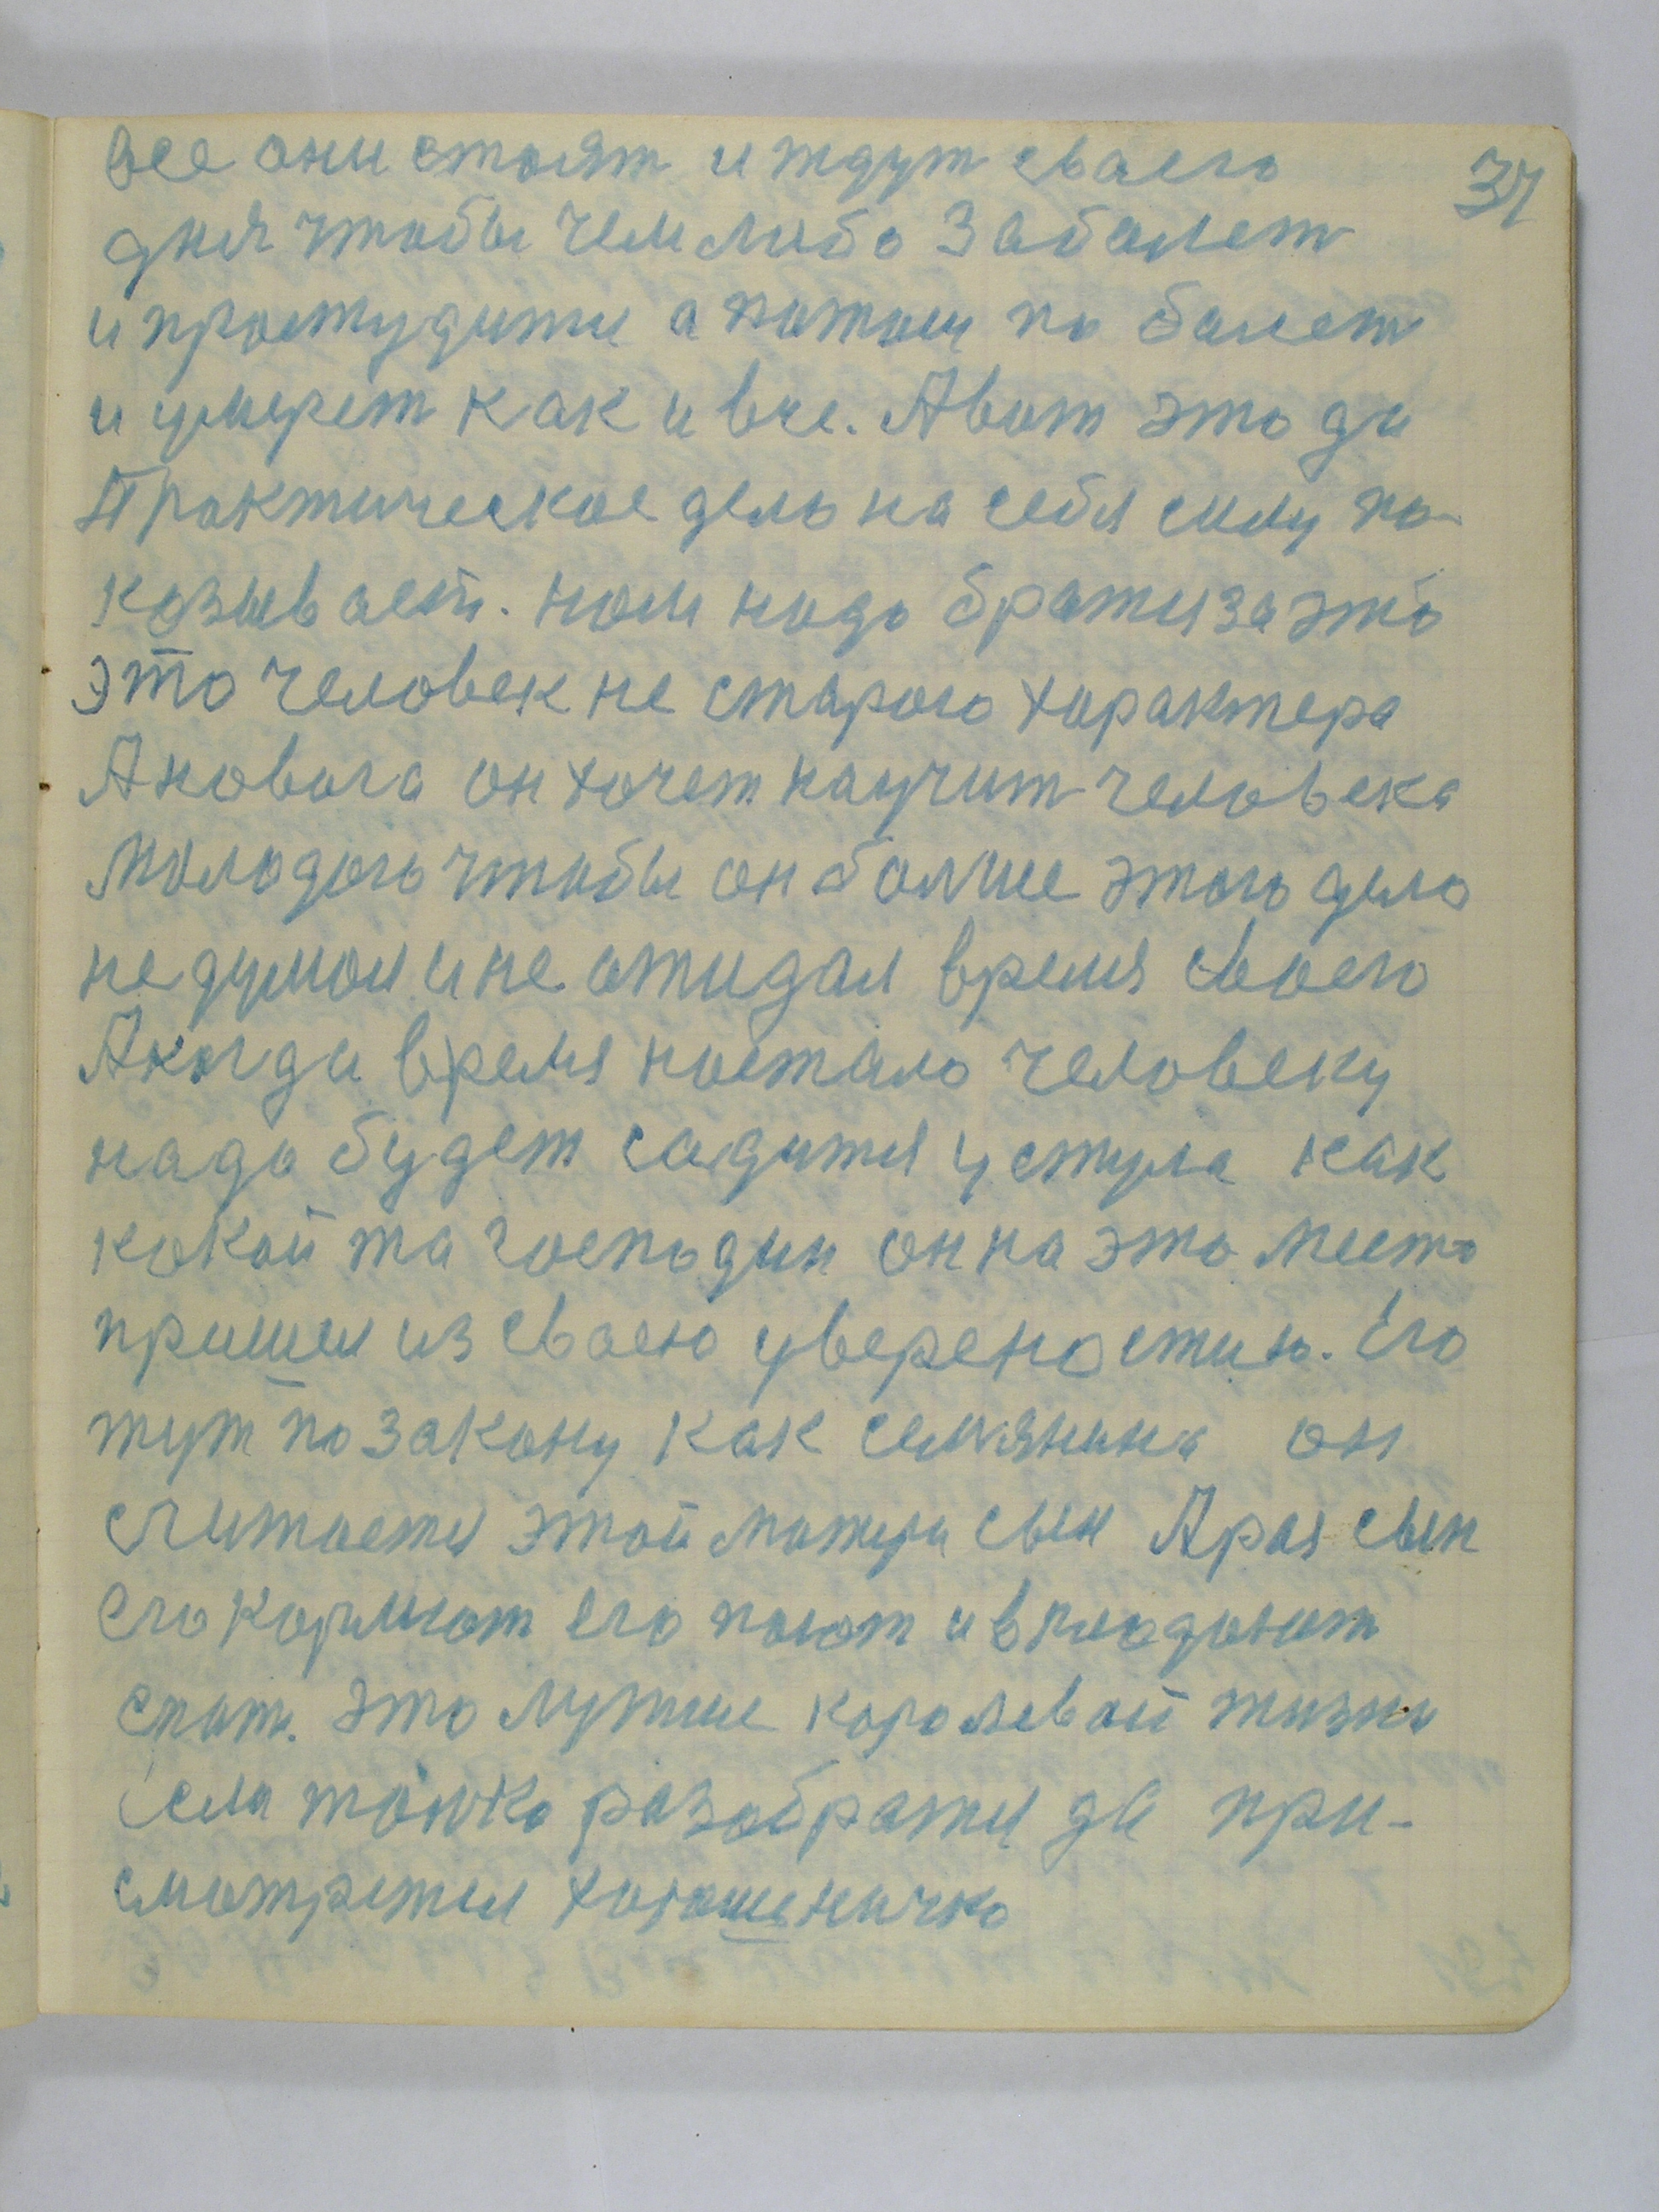 все они стоят и ждут сваего
37
дня чтобы чем либо забалет
и простудитися а потом по балет
и умерет как и все. А вот это да
Практическое дело на себя силу по-
козывает. нам надо братися за это
это человек не старого характера
А новога он хочет научит человека
молодого чтобы он болше этого дела
не думал и не ожидал время своего
А когда время настало человеку
надо будет садится у стула как
какой та господин он на это место
пришел из сваею увереностию. Его
тут по закону как семянина он
считается этой матери сын А раз сын
его кормют его поют и в кладают
спат. это лутше каролевай жизни
если толко разобратися да при-
смотретися хорошеничко